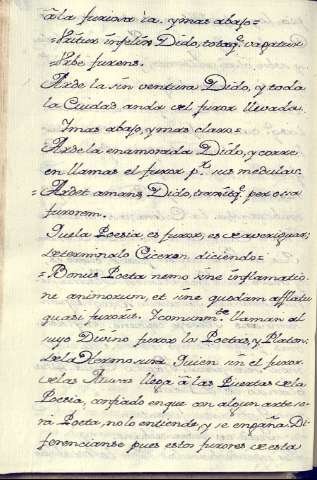 à la furiosa ira. y mas abajo=
=Uritur infelix Dido, totaq.e vagatur
=Urbe furens.
Arde la sin ventura Dido, y toda
la Ciudad anda del furor llevada.
Y mas abajo, y mas claro=
=Arde la enamorada Dido, y corre
en llamas el furor p.r sus medulas.
=Ardet amans Dido, traxitq.e per ossa
furorem.
Que la Poesia es furor, es de averiguar;
determinalo Ciceron diciendo=
=Bonus Poeta nemo sine inflamatio
ne animorum, et sine quodam afflatu
quasi furoris. Y comunm.te llaman al
suyo Divino furor los Poetas, y Platon;
de la Hermosura Quien sin el furor
de las Musas llega à las Puertas de la
Poesia, confiado en que con algun arte se
rá Poeta, no lo entiende, y se engaña. Di
ferencianse pues estos furores de esta